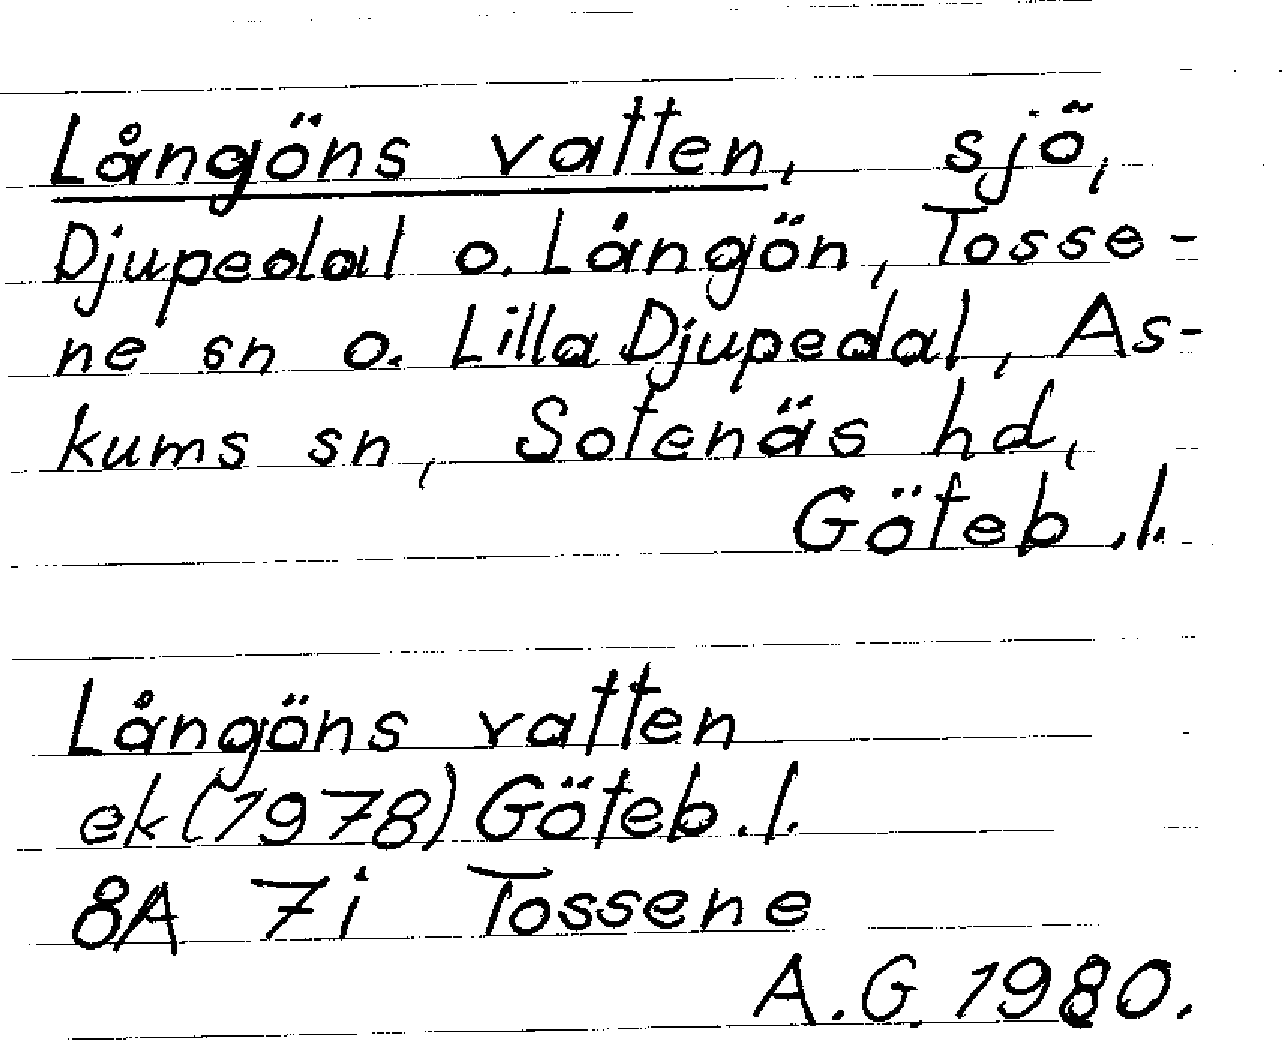 Långöns vatten, sjö,
Djupedal o. Långön, Tosse-
ne sn o. Lilla Djupedal, As-
kums sn, Sotenäs hd,
Göteb.l.
Långöns vatten
ek (1978) Göteb.l.
8A 7i Tossene
A.G. 1980.